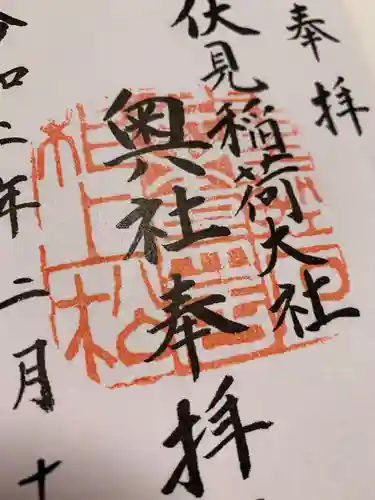 奉拝
伏見稲荷大社
奥社奉拝
令和二年二月十